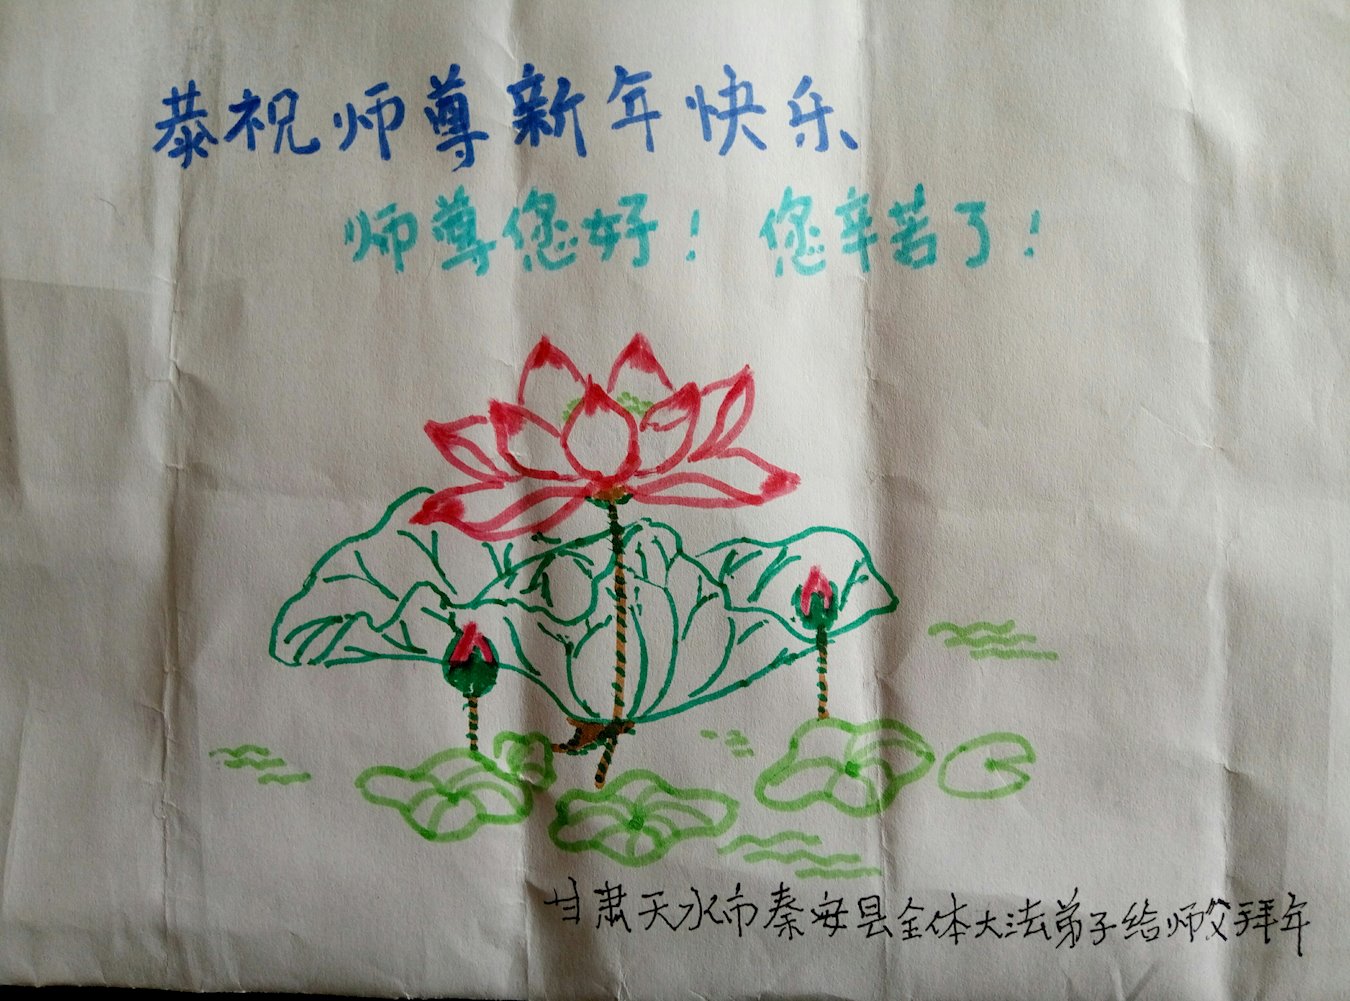 恭祝师尊新年快乐
师尊您好！您辛苦了！
甘肃天水市秦安县全体大法弟子给师父拜年